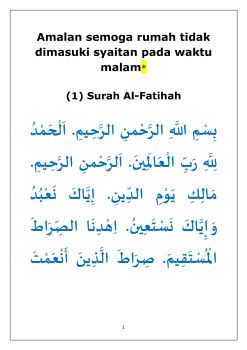 Amalan semoga rumah tidak
dimasuki syaitan pada waktu
malam*
(1) Surah Al-Fatihah
بِسْمِ اللَّهِ الرَّحْمنِ الرَّحِيمِ. اَلْحَمْدُ
لِلَّهِ رَبِّ الْعَالَمِينَ. اَلرَّحْمنِ الرَّحِيمِ.
مَالِكِ يَوْمِ الدِّينِ. إِيَّاكَ نَعْبُدُ
وَإِيَّاكَ نَسْتَعِينُ. اِهْدِنَا الصِّرَاطَ
الْمُسْتَقِيمَ. صِرَاطَ الَّذِينَ أَنْعَمْتَ
1